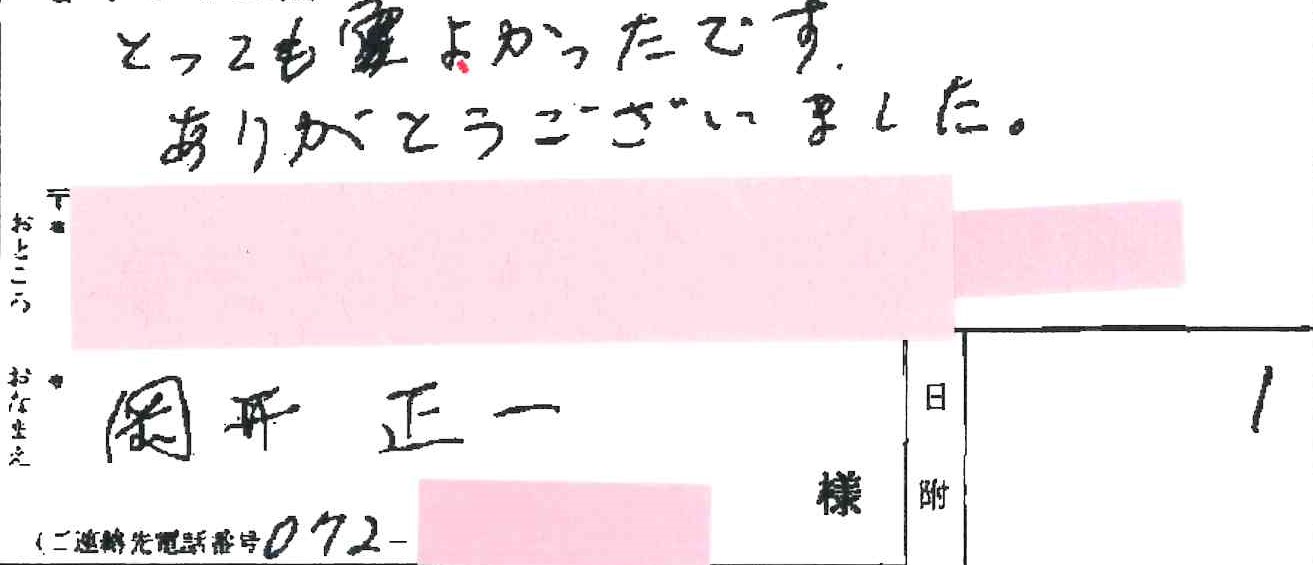 とっても よかったです.
ありがとうございました。
〒
おところ
おなまえ
岡井 正一
様
(ご連絡先電話番号 072-
日附
1